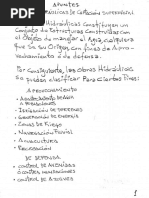 APUNTES
HIDRÁULICAS DE CAPTACIÓN SUPERFICIAL
Hidráulicas Constituyen un
Conjunto de Estructuras Construidas con
el Objeto de manejar el Agua, cualquiera
que sea su Origen con fines de Aprove-
chamiento o de defensa.
Por Consiguiente, las Obras Hidráulicas
se pueden clasificar Para Ciertos Fines:
APROVECHAMIENTO
• ABASTECIMIENTO DE AGUA
A POBLACIONES
•
• GENERACIÓN DE ENERGÍA
• Zonas de Riego
• Navegación Fluvial
• Acuacultura
• Recreación
DE DEFENSA
• CONTROL DE AVENIDAS
E INUNDACIONES
• CONTROL DE AZOLVES
1